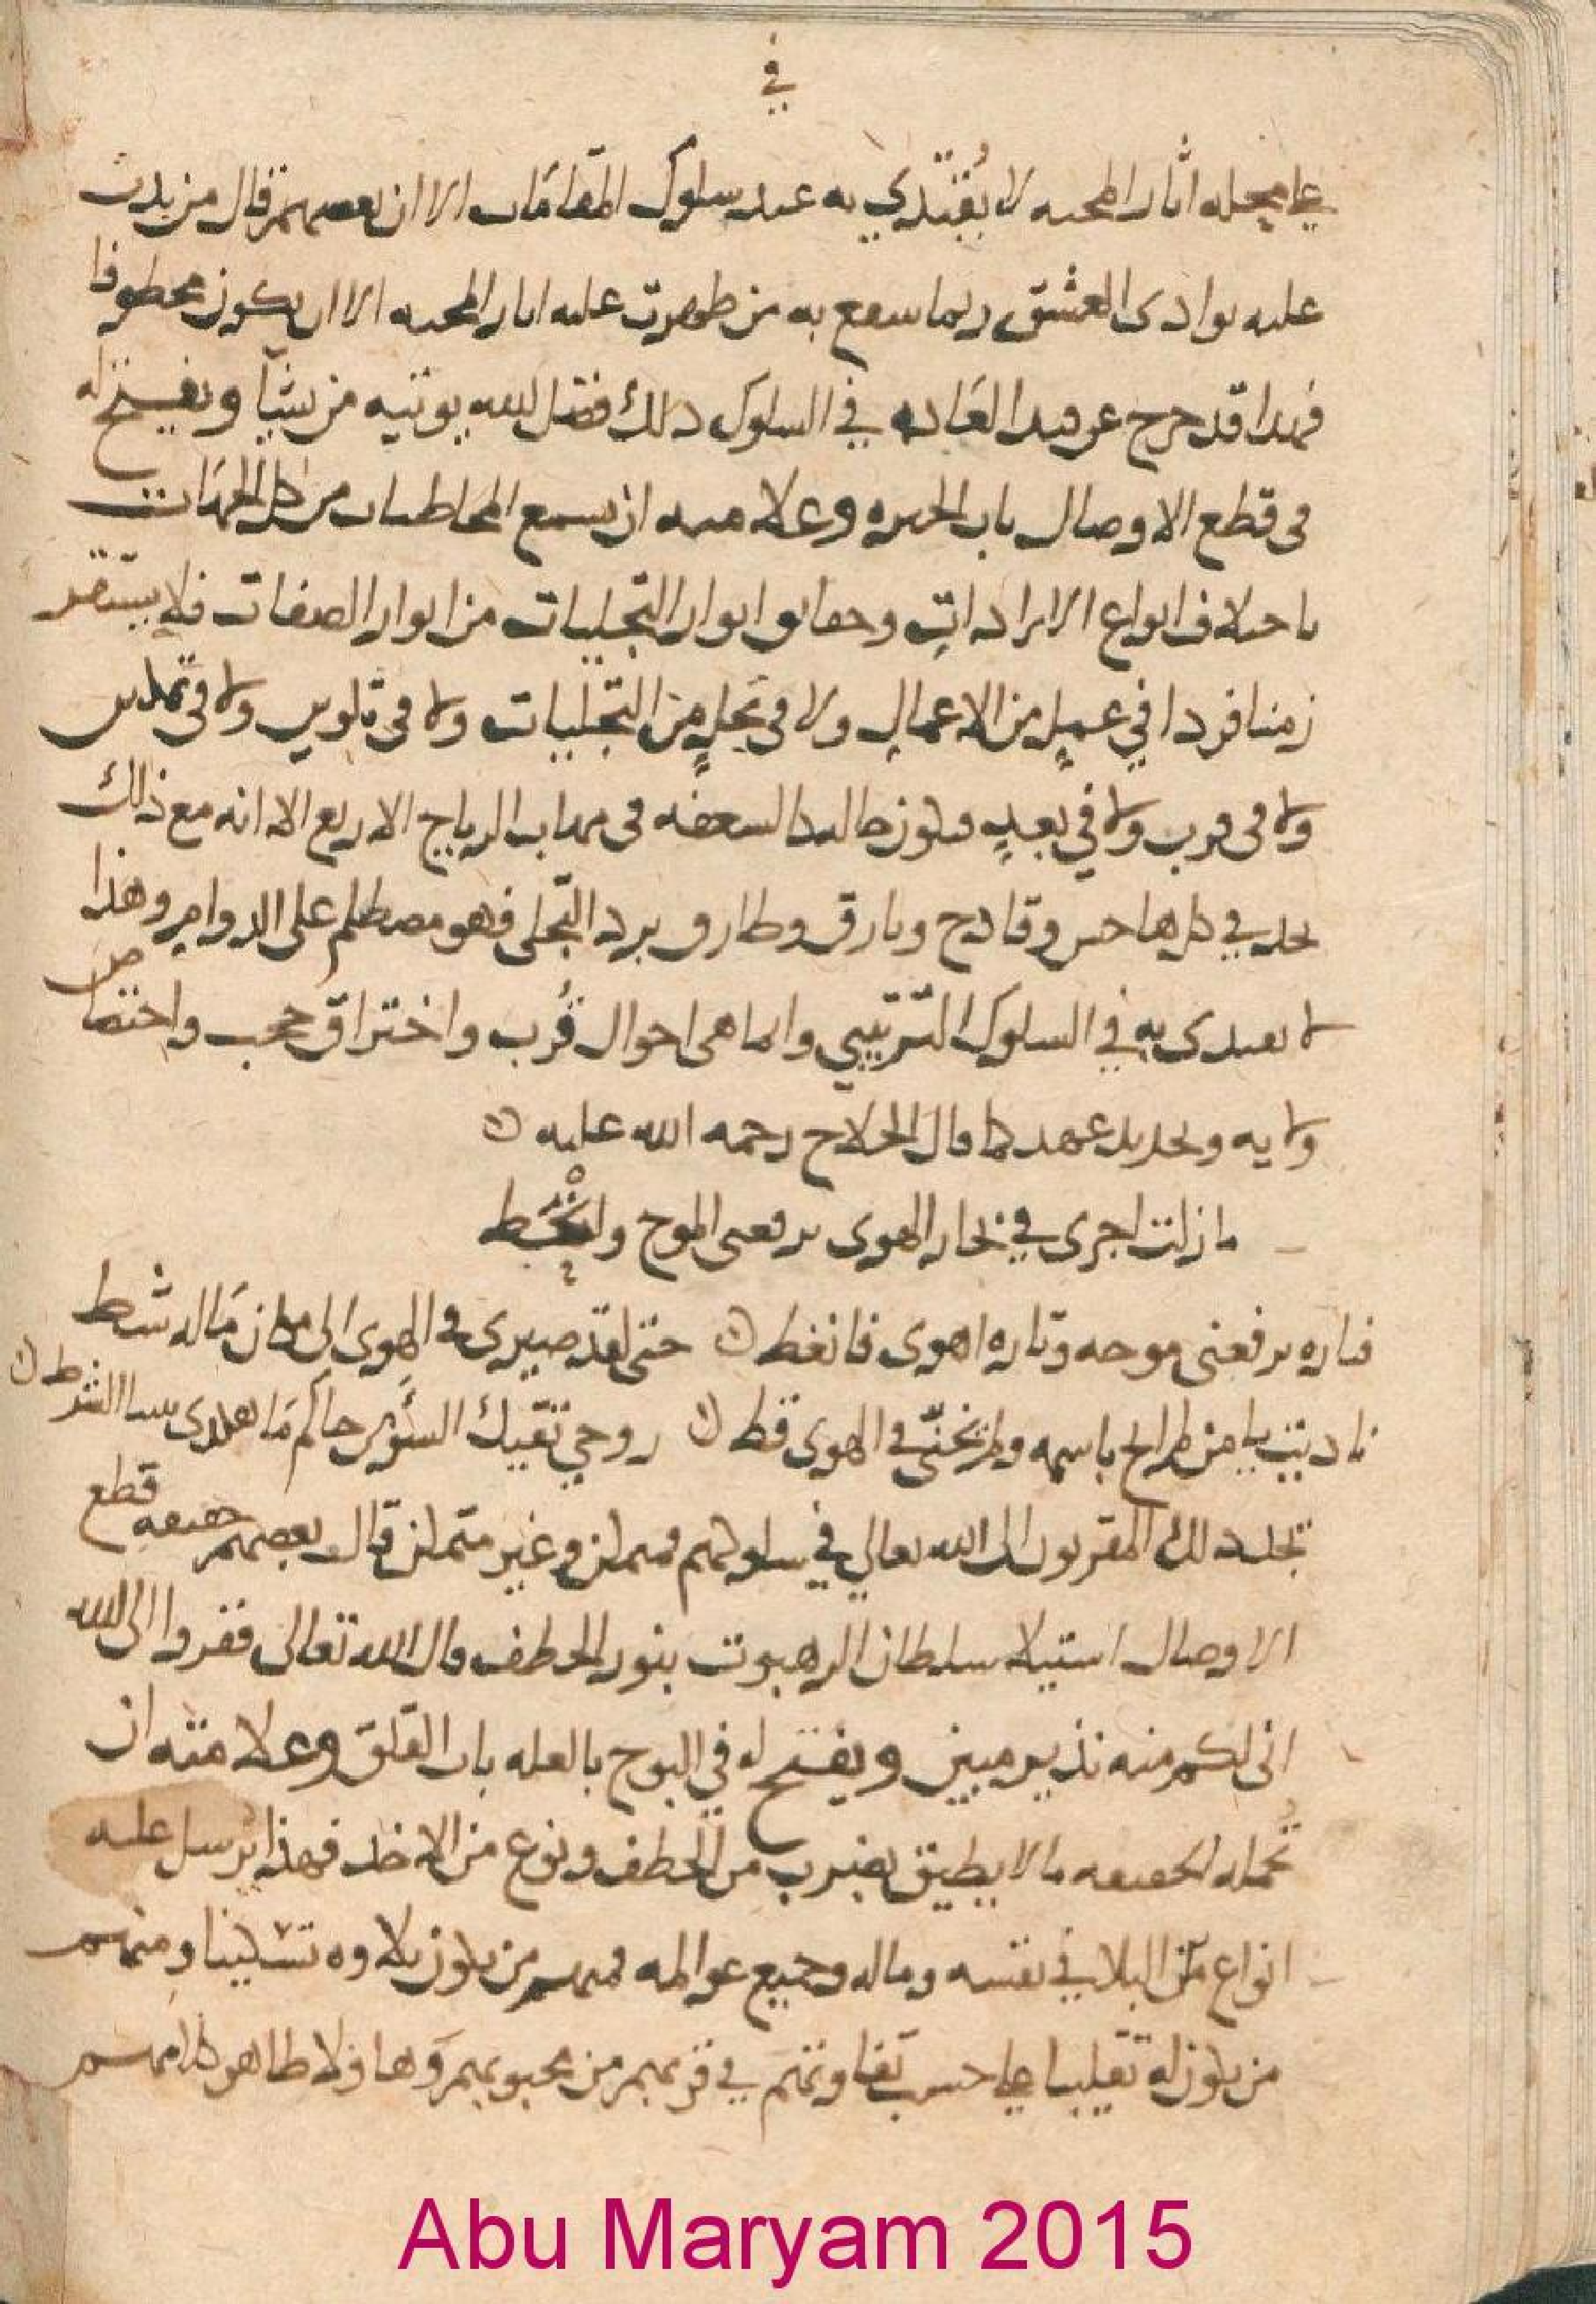 في
على محله اثار المحبه لا يُقتدي به عند سلوك المقامات الا ان بعضهم قال من بدت
عليه بوادى العشق ربما سفع به من ظهرت عليه اثار المحبه الا ان يكون مخطوفا
فهذا قد خرج عن هذا العاده في السلوك ذلك فضل الله يوتيه من يشآ ويفتح له
فى قطع الاوصال باب الحيره وعلامته ان يسمع المخاطبات من كل الجهات
باختلاف انواع الايرادات وحقايق انوار التجليات من انوار الصفات فلا يستقر
زمنا فردا في عمل من الاعمال ولا فى تجلٍ من التجليات ولا فى تلوين ولا فى تمكين
ولا فى قرب ولا في بعدٍ فيكون كالسعفه فى مهاب الرياح الاربع الا انه مع ذلك
يجد في كلها حس وقادح وبارق وطارق برد التجلى فهو مصطلم على الدوام وهذا
لا يقتدى به في السلوك الترتيبي وانما هى احوال قُرب واختراق حجب واختصاص
ولايه وتجديد عهد كما قال الحلاج رحمه الله عليه
ما زلت اجرى في بحار الهوى يرفعنى الموج وانحط
فتاره يرفعنى موجه وتاره اهوى فانغط حتى لقد صيرى في الهوى الى مكان ماله شط
ناديت يا من لم ابح باسمه ولم اخنه في الهوى قط روحي تقيك السّوْ من حاكم ما هكذى بيننا الشرط
تجد ذلك المقربون الى الله تعالي في سلوكهم متمكن وغير متمكن قال بعضهم حقيقه قطع
الاوصال استيلا سلطان الرهبوت بنور الخطف قال الله تعالى ففروا الى الله
انى لكم منه نذير مبين ويفتح له في البوح بالعله باب القلق وعلامته ان
تحمله الحقيقه ما لا يطيق بضرب من الخطف ونوع من الاخذ فهذا يرسل عليه
انواع من البلا في نفسه وماله وجميع عوالمه فمنهم من يكون بلاوه تسكينا ومنهم
من يكون له تقليبا على حسب تفاوتهم في قربهم من محبوبهم وهاولا ظاهر كلامهم
Abu Maryam 2015